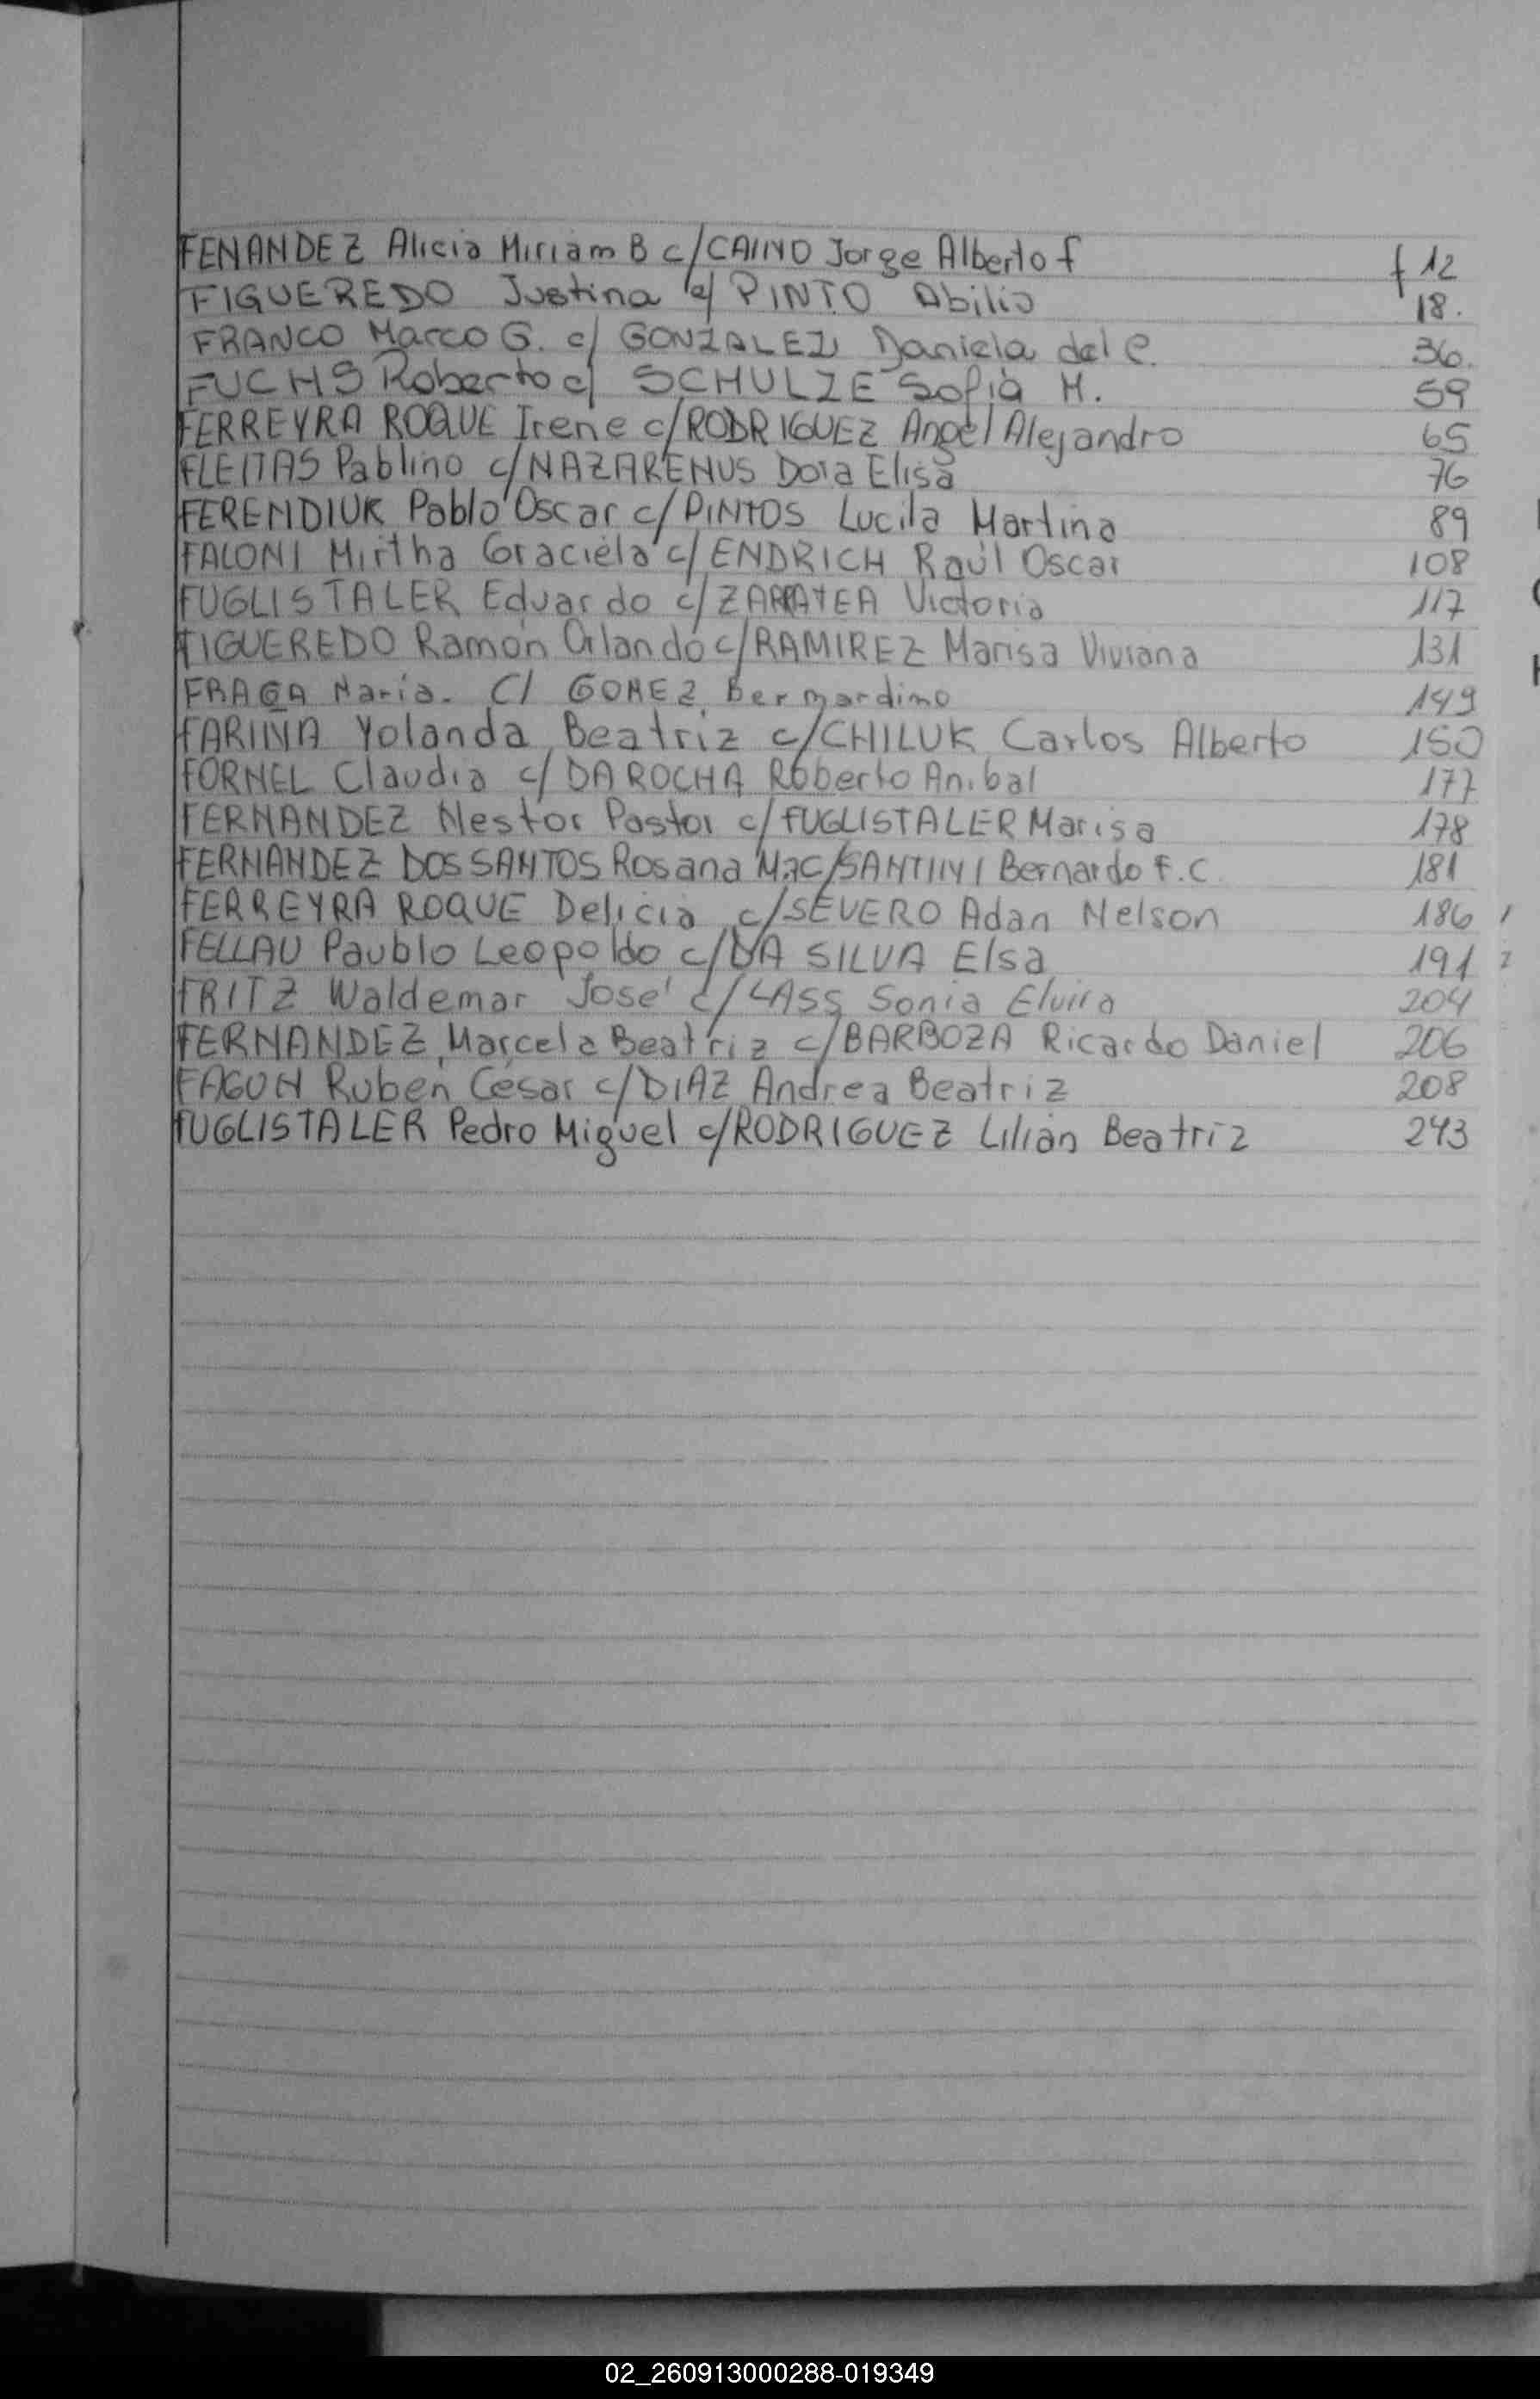 FENANDEZ Alicia Miriam B c/CAINO Jorge Alberto f f 12
FIGUEREDO Justina c/ PINTO Abilio 18.
FRANCO Marco G. c/ GONZALEZ Daniela del C. 36.
FUCHS Roberto c/ SCHULZE Sofia M. 59
FERREYRA ROQUE Irene c/RODRIGUEZ Angel Alejandro 65
FLEITAS Pablino c/NAZARENUS Dora Elisa 76
FERENDIUK Pablo Oscar c/PINTOS Lucila Martina 89
FALONI Mirtha Graciela c/ENDRICH Raúl Oscar 108
FUGLISTALER Eduardo c/ZARRATEA Victoria 117
FIGUEREDO Ramón Orlando c/RAMIREZ Marisa Viviana 131
FRAGA Maria. C/ GOMEZ Bernardino 149
FARINA Yolanda Beatriz c/CHILUK Carlos Alberto 150
FORNEL Claudia c/ DA ROCHA Roberto Anibal 177
FERNANDEZ Nestor Pastor c/FUGLISTALER Marisa 178
FERNANDEZ DOS SANTOS Rosana Ma C/SANTINI Bernardo F.C. 181
FERREYRA ROQUE Delicia c/SEVERO Adan Nelson 186
FELLAU Paublo Leopoldo c/DA SILVA Elsa 191
FRITZ Waldemar José c/LASS Sonia Elvira 204
FERNANDEZ Marcela Beatriz c/BARBOZA Ricardo Daniel 206
FAGUN Ruben César c/DIAZ Andrea Beatriz 208
FUGLISTALER Pedro Miguel c/RODRIGUEZ Lilian Beatriz 243
02_260913000288-019349